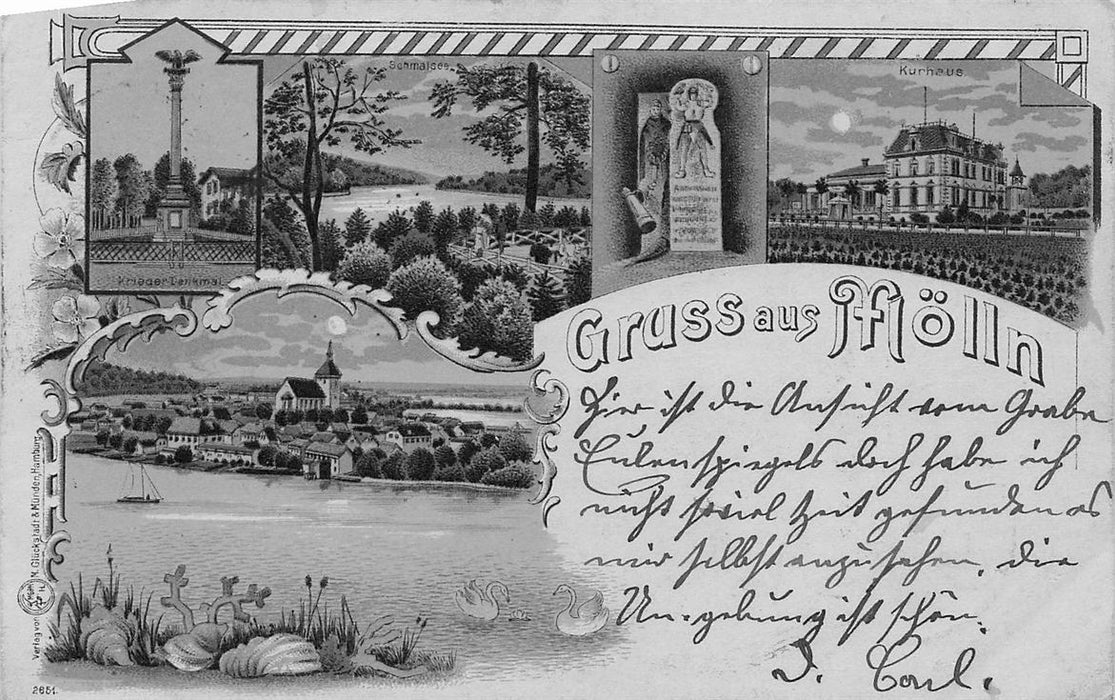 Schmalsee
Kurhaus
Krieger-Denkmal
Gruss aus Mölln
Hier ist die Ansicht vom Grabe
Eulenspiegels doch habe ich
nicht soviel Zeit gefunden es
mir selbst anzusehen, die
Umgebung ist schön.
D. Carl.
Verlag von M. Glückstadt & Münden, Hamburg
2651.